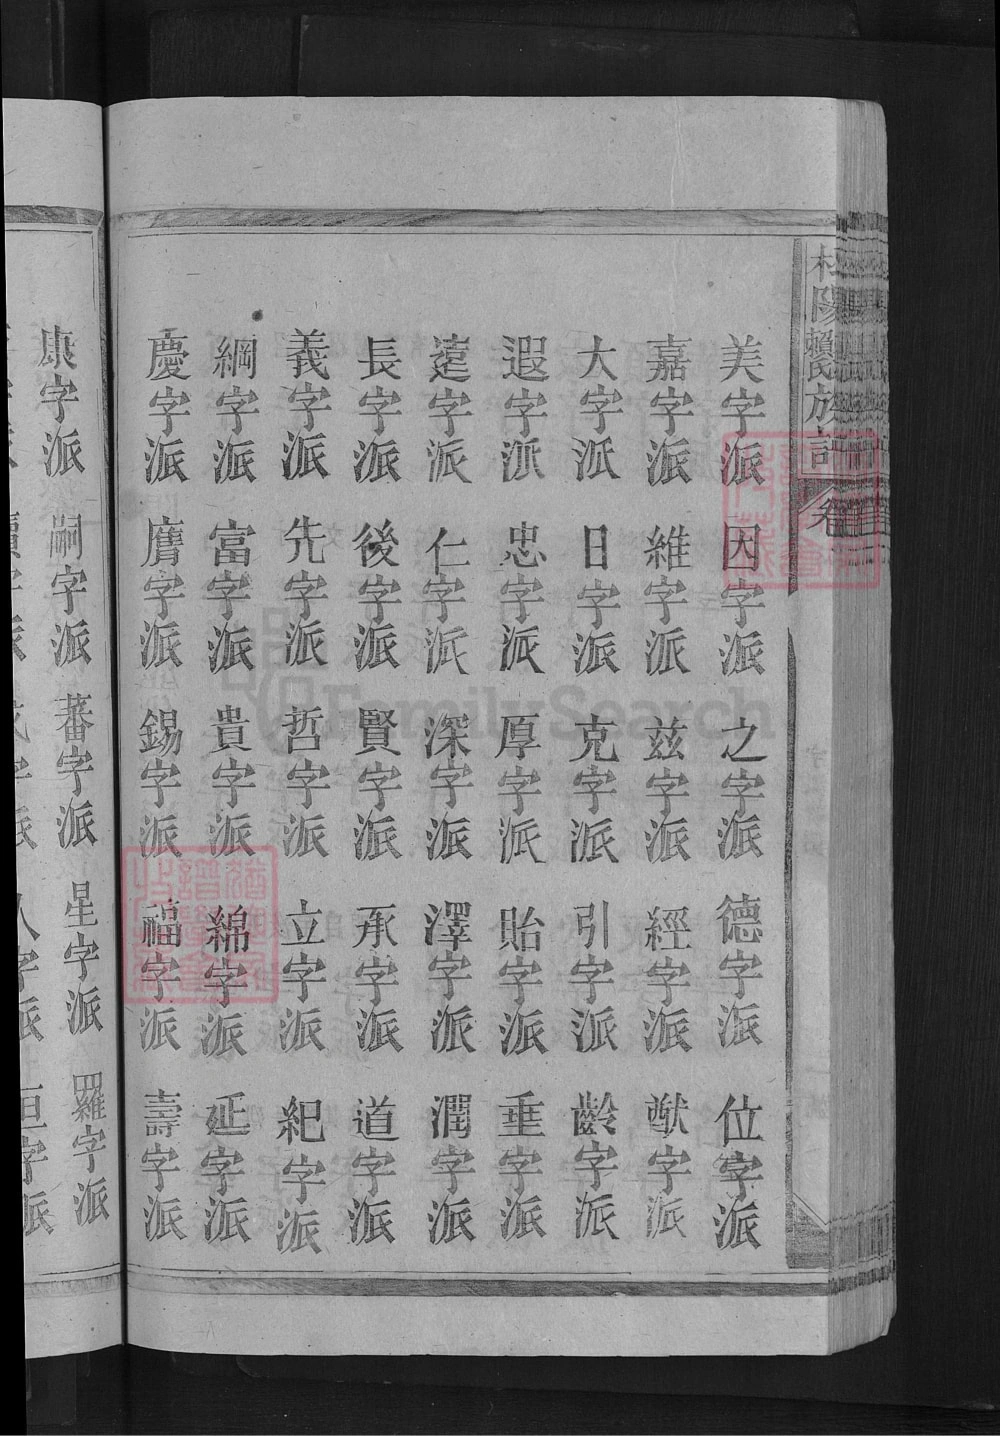 陽賴氏族譜 卷
美字派 因字派 之字派 德字派 位字派
嘉字派 維字派 茲字派 經字派 猷字派
大字派 日字派 克字派 引字派 齡字派
遐字派 忠字派 厚字派 貽字派 垂字派
遠字派 仁字派 深字派 澤字派 潤字派
長字派 後字派 賢字派 承字派 道字派
義字派 先字派 哲字派 立字派 紀字派
綱字派 富字派 貴字派 綿字派 延字派
慶字派 膺字派 錫字派 福字派 壽字派
康字派 嗣字派 蕃字派 星字派 羅字派
FamilySearch